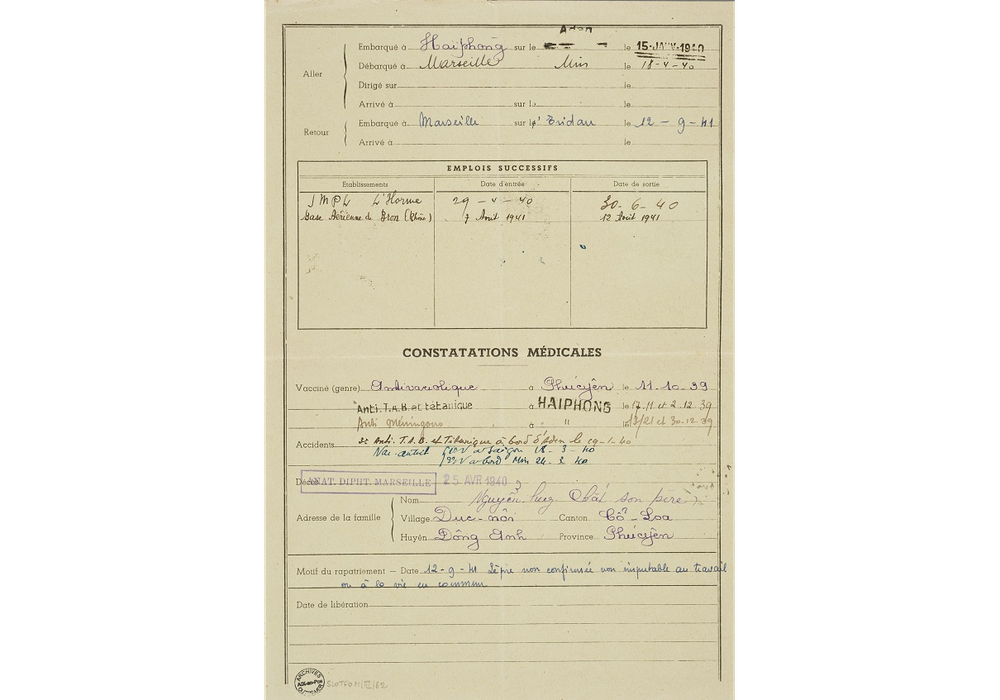 Aller
Embarqué à Haiphong sur le Aden le 15 JANV 1940
Débarqué à Marseille Min le 18-4-40
Dirigé sur le
Arrivé à sur le le
Retour
Embarqué à Marseille sur l' Eridan le 12-9-41
Arrivé à le
EMPLOIS SUCCESSIFS
Etablissements Date d'entrée Date de sortie
L'Horme 29-4-40 30-6-40
Base Aérienne de Bron (Rhône) 7 Août 1941 12 Août 1941
CONSTATATIONS MÉDICALES
Vacciné (genre) Antivariolique à Phucyên le 11.10.39
Anti.T.A.B. et tétanique à HAIPHONG le 17.11 et 2.12.39
Anti Méningoc à " le et 30-12-39
Accidents 3e Anti. T.A.B. et Tétanique à bord d'Aden le
à Saigon 18-3-40
à bord Min 24.3.40
Décès ANAT. DIPHT. MARSEILLE 25 AVR 1940
Adresse de la famille
Nom Nguyên son père
Village Duc-nôi Canton Cô-Loa
Huyên Dông Anh Province Phucyên
Motif du rapatriement — Date 12-9-41 Lèpre non confirmée non imputable au travail
ou à la vie en commun
Date de libération
ARCHIVES
Aix-en-Pce
OUTRE-MER
SLOTFOM